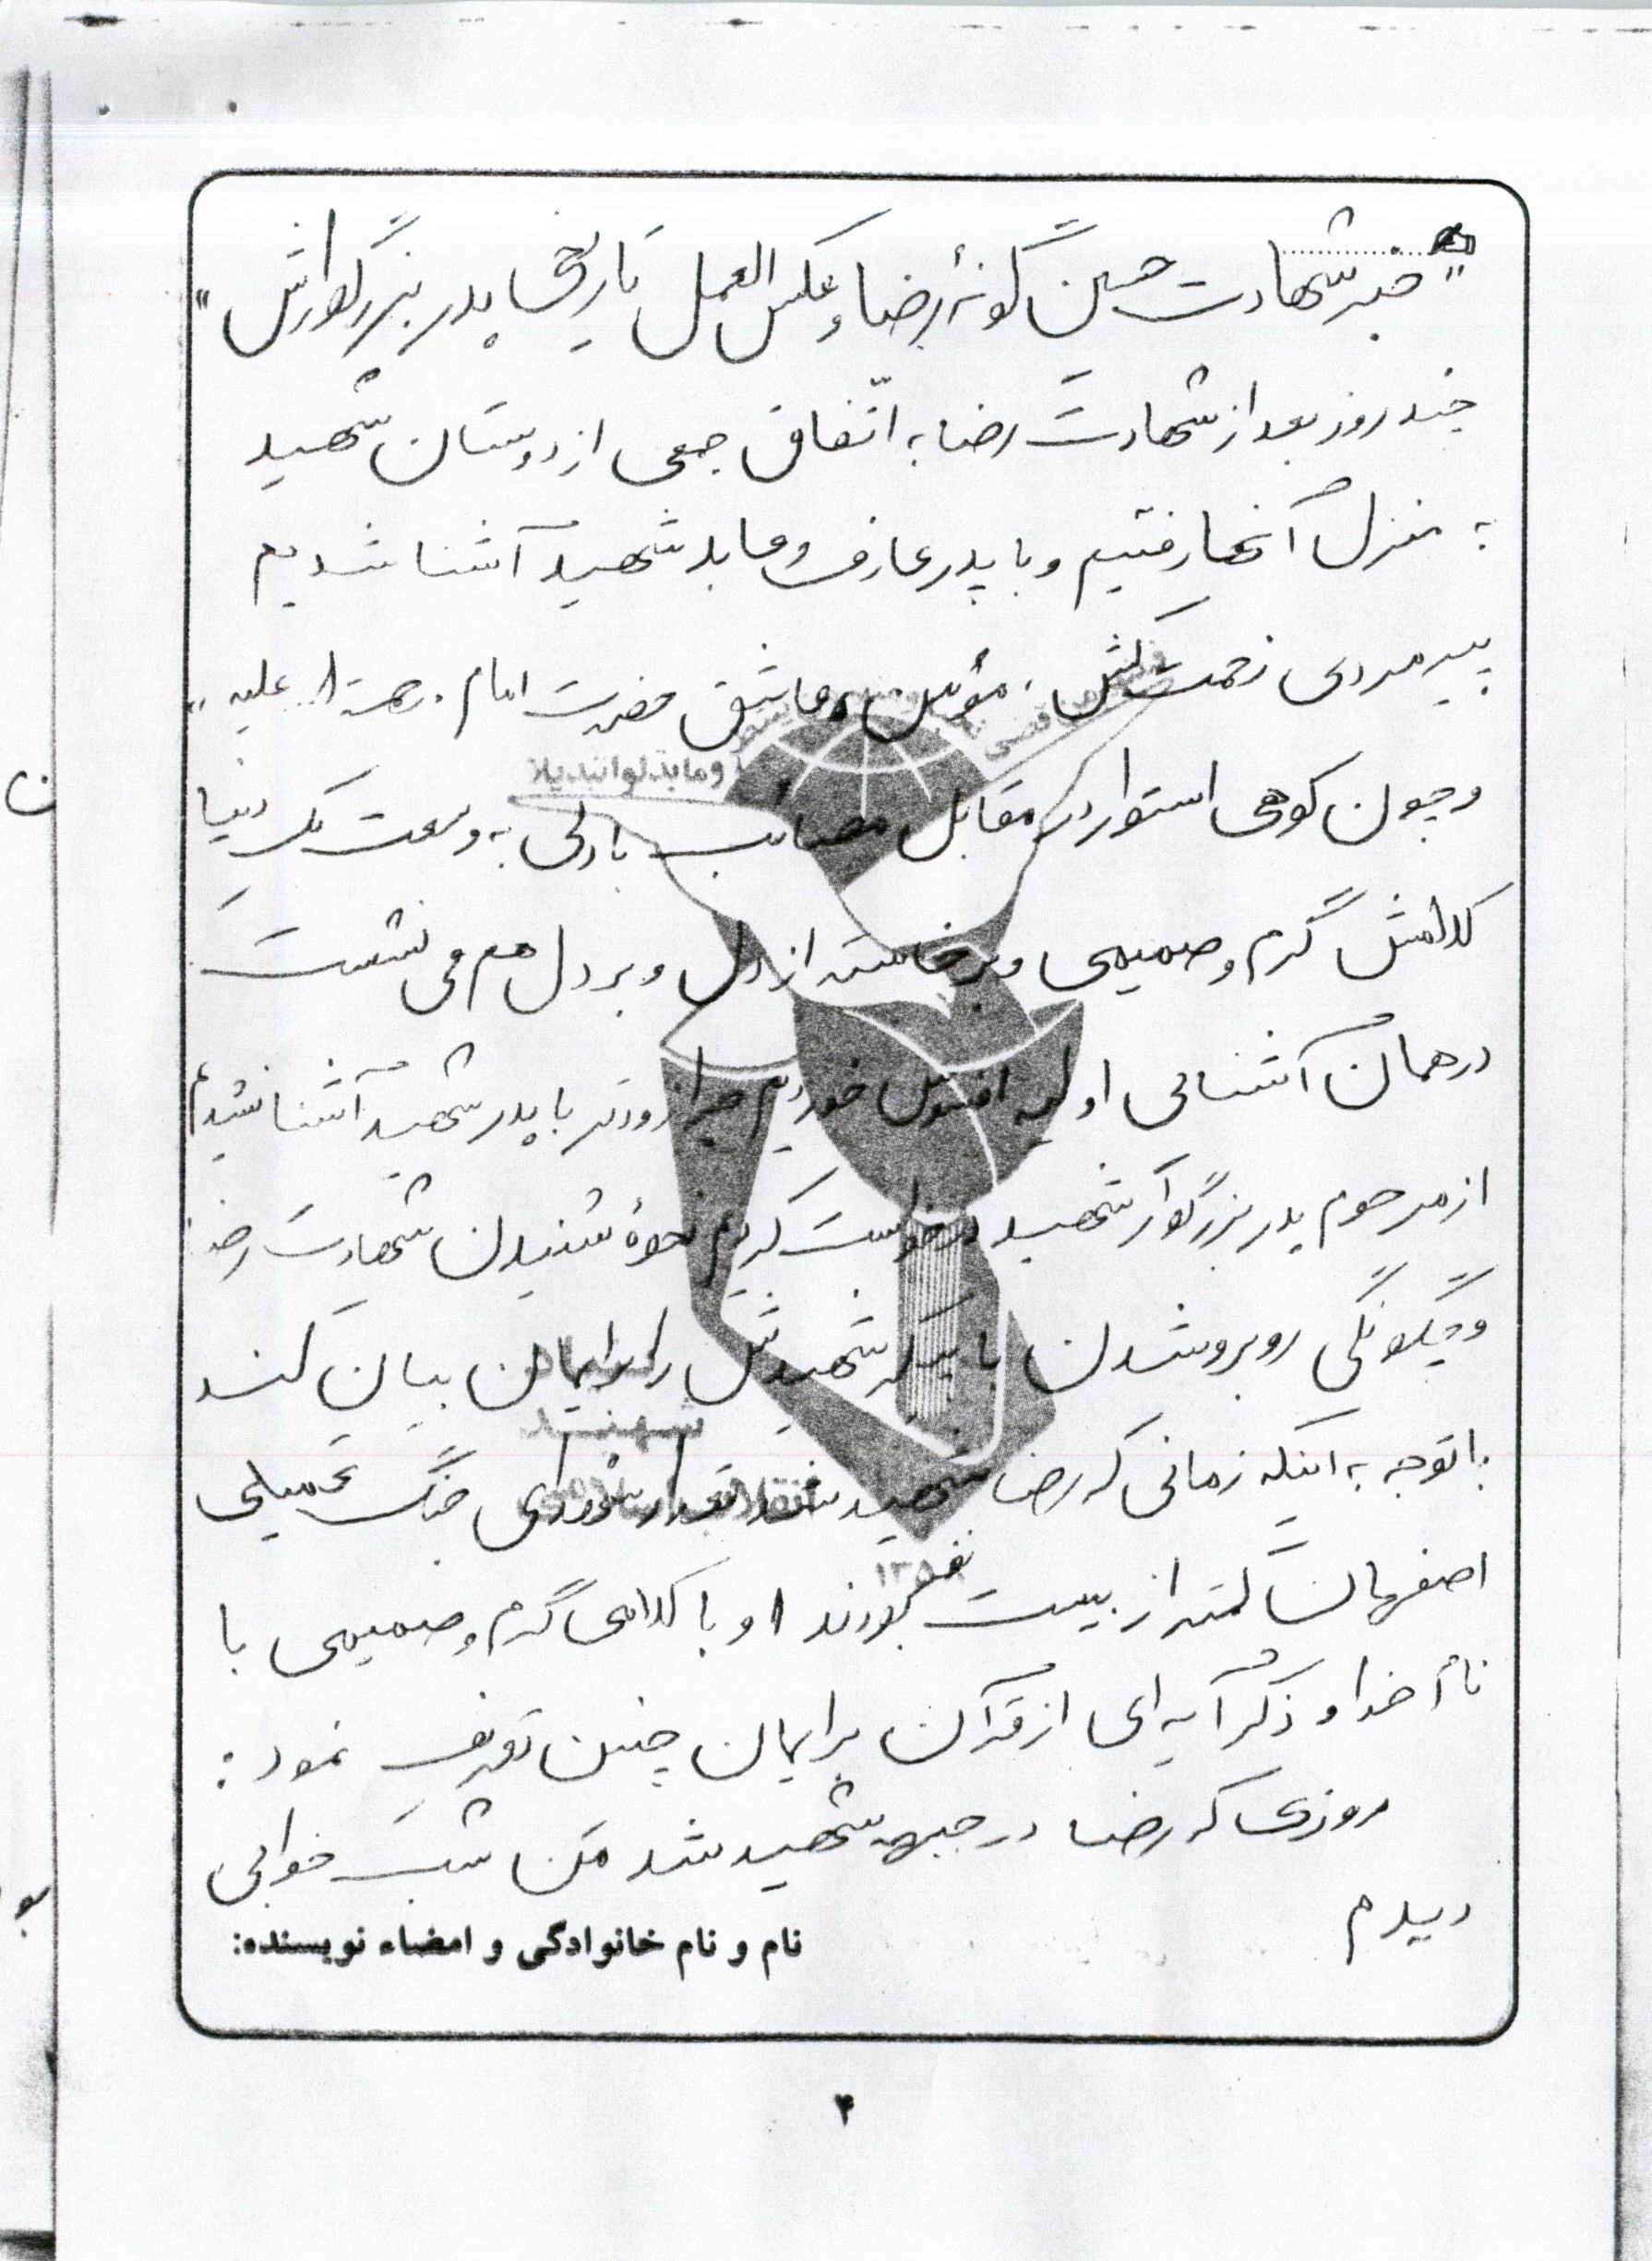 "خبر شهادت حسین گونهٔ رضا و عکس العمل تاریخی پدر بزرگوارش"
چند روز بعد از شهادت رضا به اتّفاق جمعی از دوستان شهید
به منزل آنها رفتیم و با پدر عارف و عابد شهید آشنا شدیم
پیرمردی زحمت کش، مؤمن و عاشق حضرت امام رحمت ا... علیه"
وما بدلوا تبدیلا
و چون کوهی استوار در مقابل مصائب با دلی به وسعت یک دنیا
کلامش گرم و صمیمی و برخاسته از دل و بر دل هم می نشست
در همان آشنائی اولیه افسوس خوردیم چرا زودتر با پدر شهید آشنا نشدیم
از مرحوم پدر بزرگوار شهید درخواست کردیم نحوهٔ شنیدن شهادت رضا
و چگونگی روبرو شدن با پیکر شهیدش را برایمان بیان کند
شهید
با توجه به اینکه زمانی که رضا شهید شد تعداد شهدای جنگ تحمیلی
اصفهان کمتر از بیست نفر بودند او با کلامی گرم و صمیمی با
نام خدا و ذکر آیه ای از قرآن برایمان چنین تعریف نمود:
روزی که رضا در جبهه شهید شد من شب خوابی
دیدم
نام و نام خانوادگی و امضاء نویسنده:
۴